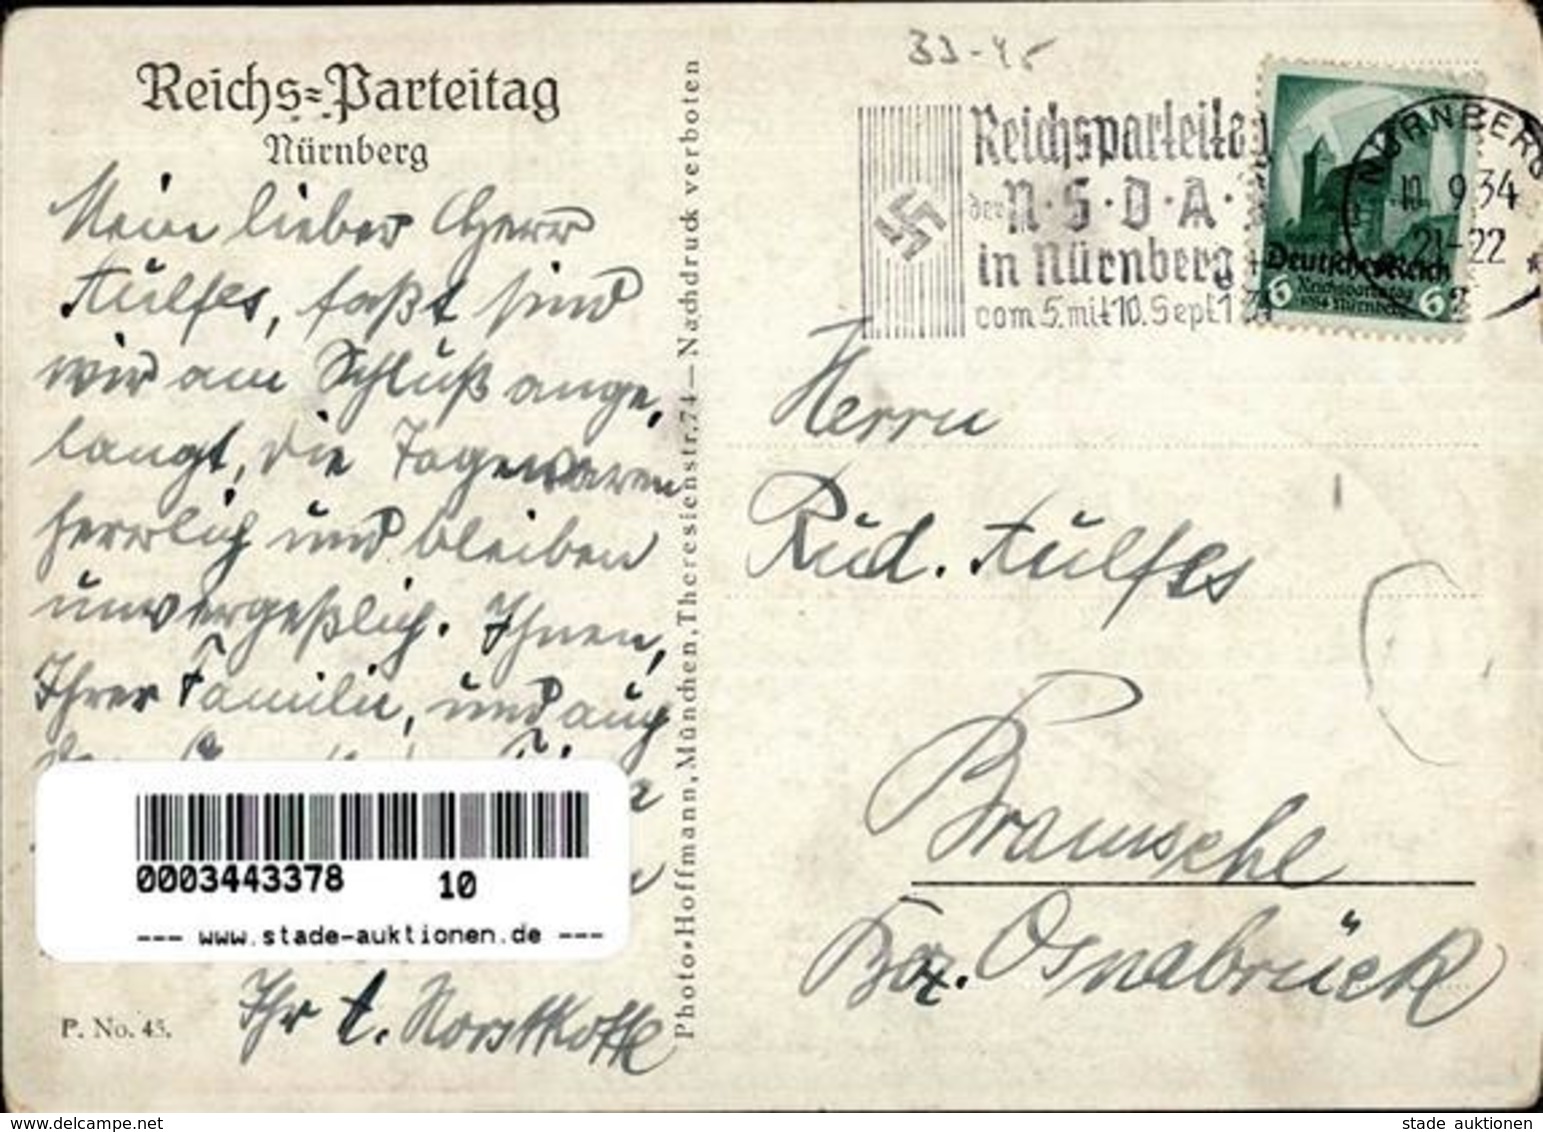 Reichs=Parteitag
Nürnberg
Mein lieber Herr
Aulfes, fast sind
wir am Schluß ange,
langt, die Tage waren
herrlich und bleiben
unvergeßlich. Ihnen,
Ihrer Familie, und auch
0003443378 10
--- www.stade-auktionen.de ---
Ihr
P. No. 43.
Photo-Hoffmann, München, Theresienstr. 74 — Nachdruck verboten
33-45
Reichsparteitag
der N·S·D·A·
in Nürnberg
vom 5. mit 10. Sept. 1
NÜRNBERG
10.9.34
21-22
*
2
Deutsches Reich
6 Reichsparteitag 6
1934 Nürnberg
Herrn
Rud. Aulfes
Bramsche
Bez. Osnabrück
stade-auktionen.de
stade auktionen